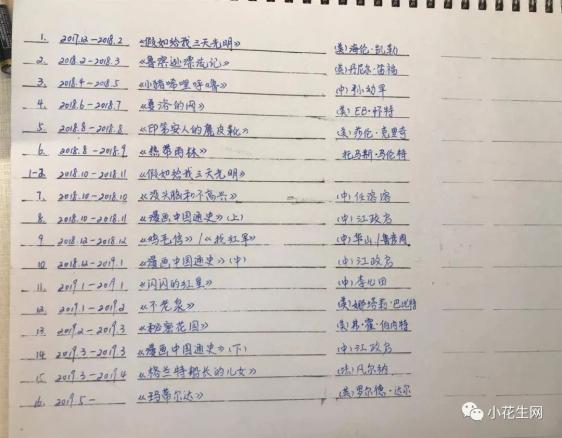 1. 2017.12-2018.2 《假如给我三天光明》 (美)海伦·凯勒
2. 2018.2-2018.3 《鲁滨逊漂流记》 (英)丹尼尔·笛福
3. 2018.4-2018.5 《小猪唏哩呼噜》 (中)孙幼军
4. 2018.6-2018.7 《夏洛的网》 (美)EB·怀特
5. 2018.8-2018.8 《印第安人的麂皮靴》 (美)莎伦·克里奇
6. 2018.8-2018.9 《热带雨林》 托马斯·马伦特
1-2 2018.10-2018.11 《假如给我三天光明》
7. 2018.10-2018.10 《没头脑和不高兴》 (中)任溶溶
8. 2018.10-2018.11 《漫画中国通史》(上) (中)江政启
9 2018.12-2018.12 《鸡毛信》/《找红军》 (中)华山/鲁彦周
10 2018.12-2019.1 《漫画中国通史》(中) (中)江政启
11. 2019.1-2019.1 《闪闪的红星》 (中)李心田
12. 2019.1-2019.2 《不老泉》 (美)娜塔莉·巴比特
13. 2019.2-2019.3 《秘密花园》 (美)弗·霍·伯内特
14. 2019.3-2019.3 《漫画中国通史》(下) (中)江政启
15. 2019.3-2019.4 《格兰特船长的儿女》 (法)凡尔纳
16. 2019.5- 《玛蒂尔达》 (英)罗尔德·达尔
小花生网